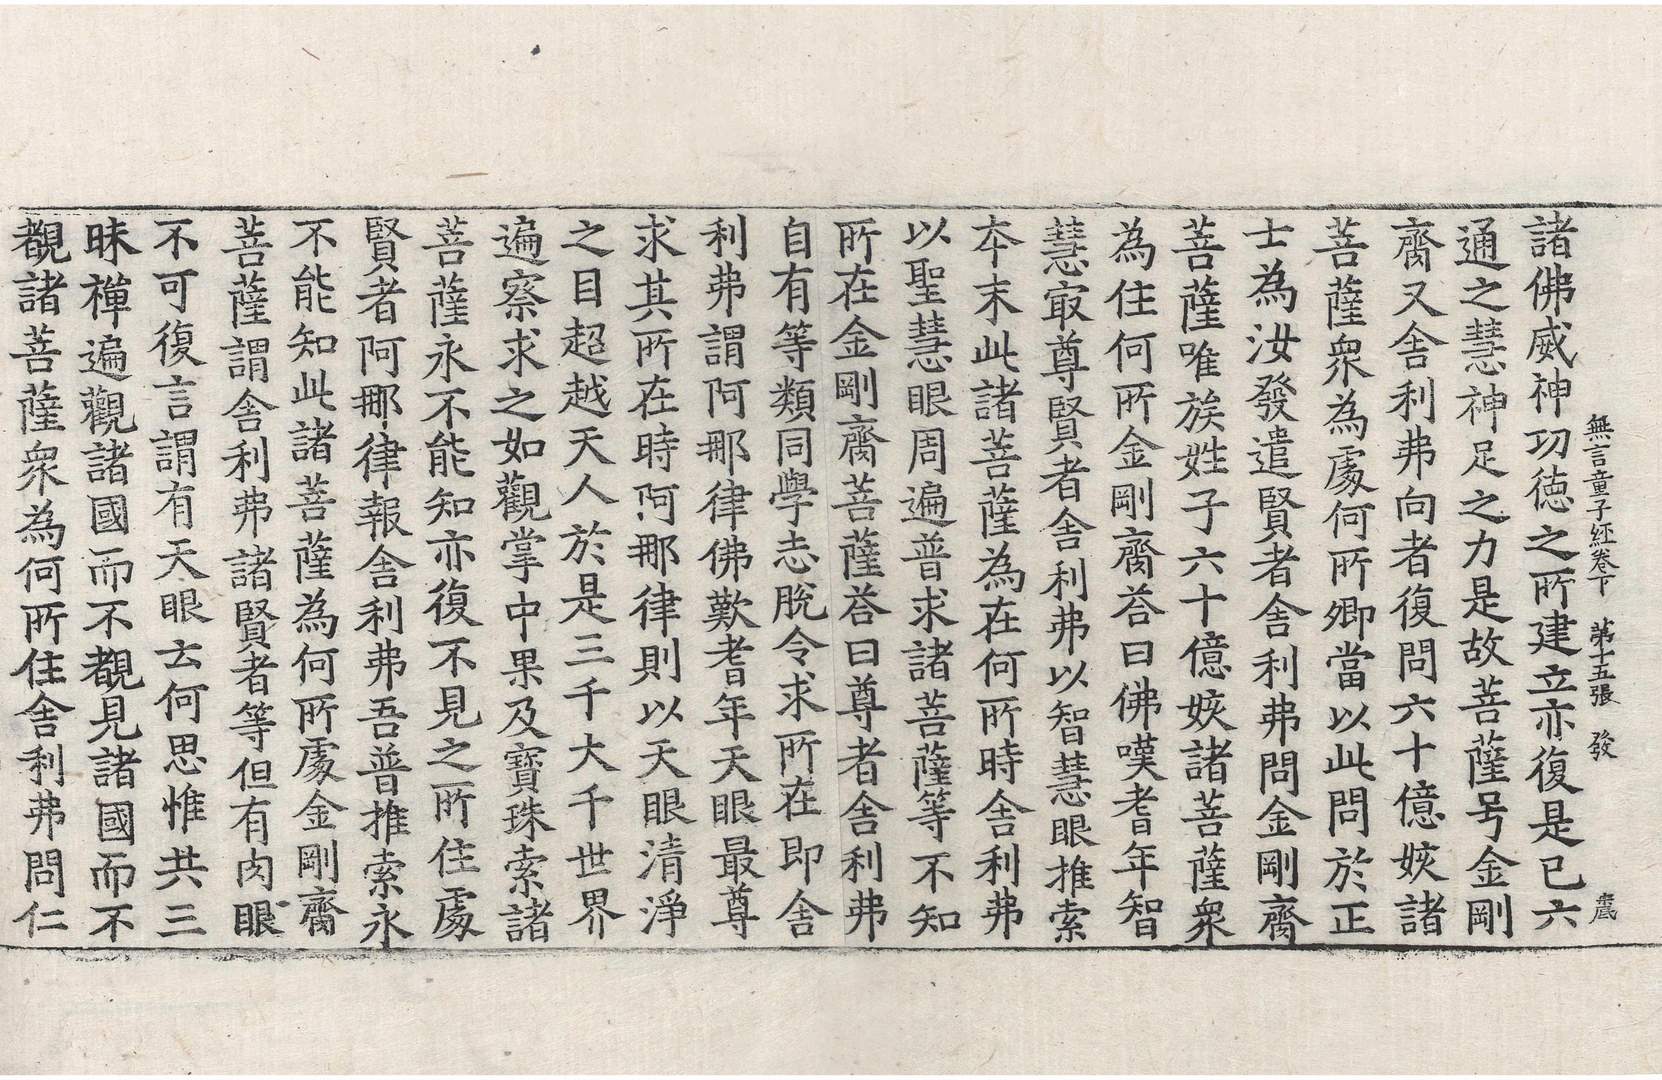 無言童子經卷下 第十五張 發
諸佛威神功德之所建立亦復是已六
通之慧神足之力是故菩薩号金剛
齎又舍利弗向者復問六十億姟諸
菩薩衆為處何所卿當以此問於正
士為汝發遣賢者舍利弗問金剛齎
菩薩唯族姓子六十億姟諸菩薩衆
為住何所金剛齎荅曰佛嘆耆年智
慧㝡尊賢者舍利弗以智慧眼推索
夲末此諸菩薩為在何所時舍利弗
以聖慧眼周遍普求諸菩薩等不知
所在金剛齎菩薩荅曰尊者舍利弗
自有等類同學志脫令求所在即舍
利弗謂阿那律佛歎耆年天眼最尊
求其所在時阿那律則以天眼清淨
之目超越天人於是三千大千世界
遍察求之如觀掌中果及寶珠索諸
菩薩永不能知亦復不見之所住處
賢者阿那律報舍利弗吾普推索永
不能知此諸菩薩為何所處金剛齎
菩薩謂舍利弗諸賢者等但有肉眼
不可復言謂有天眼去何思惟共三
昧禪遍觀諸國而不覩見諸國而不
覩諸菩薩衆為何所住舍利弗問仁